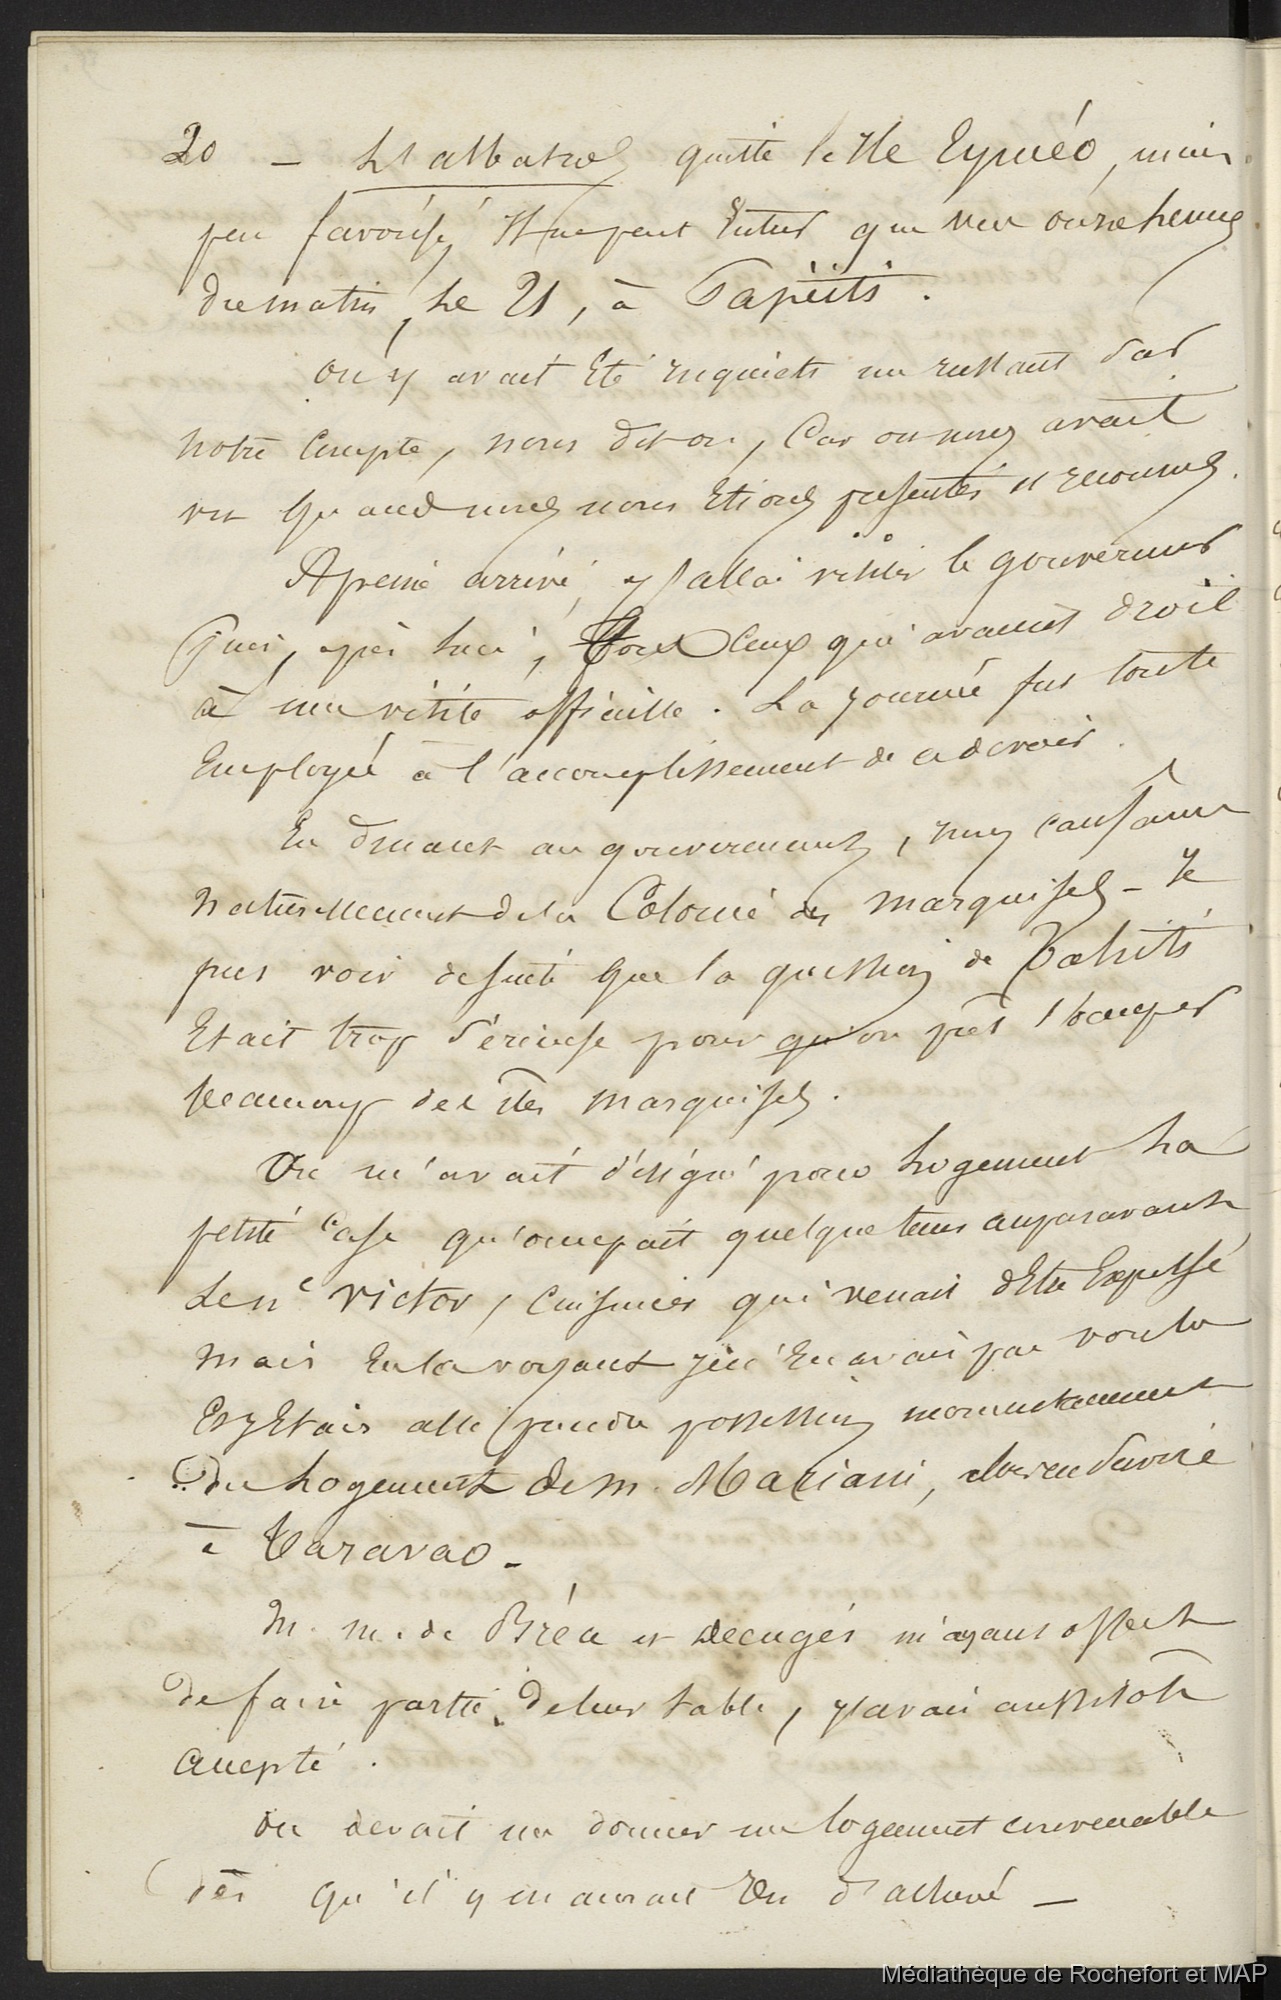 20 – L'albatros quitte l'Ile Eyméo, mais
peu favorisé, Il ne peut Entrer que vers onze heures
du matin, le 21, à Papéiti.
On y avait Eté inquiets un instant sur
notre Compte, nous dit on, Car on nous avait
vu quand nous nous Etions présentés et reconnus.
A peine arrivé, j'allai visiter le gouverneur
Puis, après lui, tous Ceux qui avaient droit
à une visite officielle. La journée fut toute
Employée à l'accomplissement de ce devoir.
En dinant au gouvernement, nous causâmes
naturellement de la Colonie des marquises – Je
pus voir de suite que la question de Tahiti
Etait trop sérieuse pour qu'on pût s'occuper
beaucoup des iles marquises.
On m'avait désigné pour logement la
petite Case qu'occupait quelque tems auparavant
Le né Victor, Cuisinier qui venait d'Etre Expulsé
mais En la voyant je n'En avais pas voulu
Et j'Etais allé prendre possession momentanement
du logement de M. Mariani, alors en service
à Taravao –
M. M. de Bréa et Decugés m'ayant offert
de faire partie de leur table, j'avais aussitôt
accepté.
On devait me donner un logement convenable
dès qu'il y en aurait Eu d'achevé –
Médiathèque de Rochefort et MAP